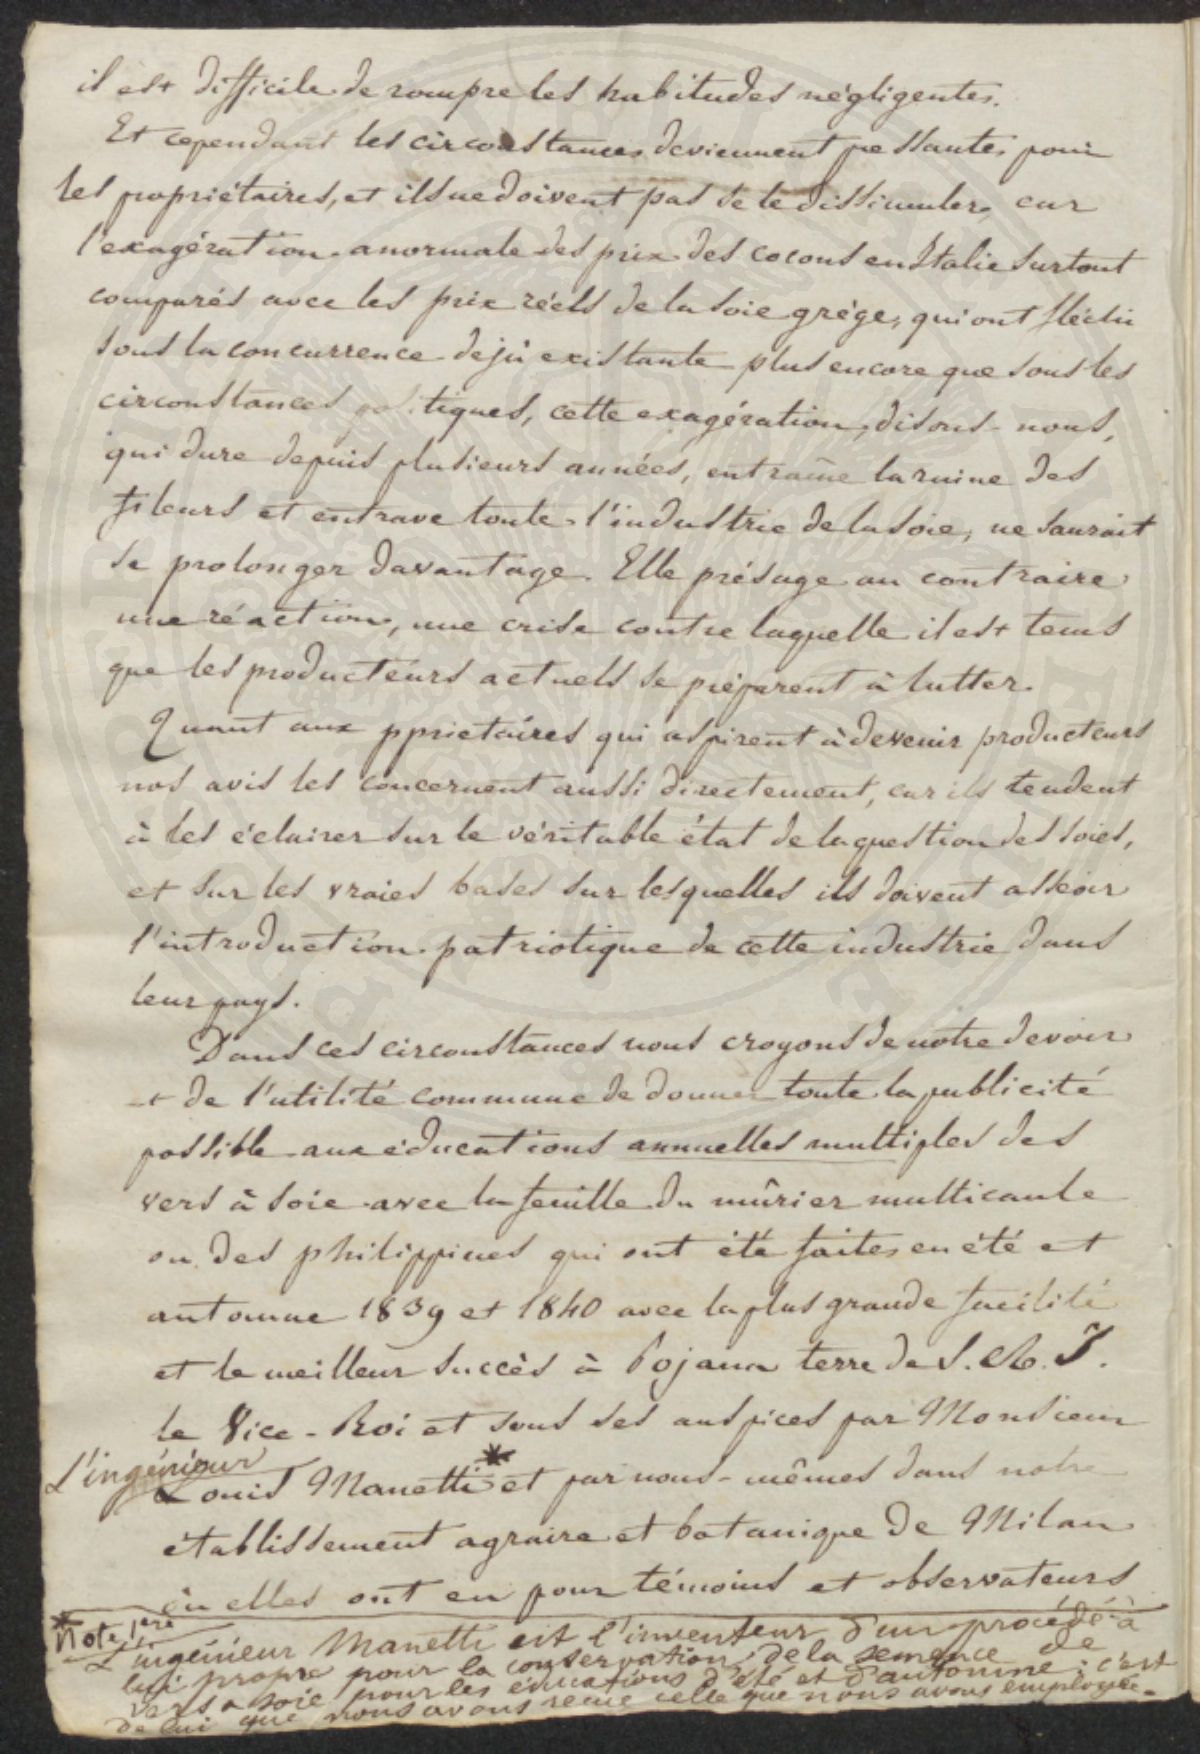 il est difficile de rompre les habitudes négligentes.
Et cependant les circonstances deviennent pessantes pour
les propriétaires, et ils ne doivent pas se le dissimuler, car
l'exagération anormale des prix des cocons en Italie surtout
comparés avec les prix réels de la soie grége, qui ont fléchi
sous la concurrence dejà existante plus encore que sous les
circonstances politiques, cette exagération, disons-nous,
qui dure depuis plusieurs années, entraîne la ruine des
fileurs et entrave toute l'industrie de la soie, ne saurait
se prolonger davantage. Elle présage au contraire
une réaction, une crise contre laquelle il est tems
que les producteurs actuels se préparent à lutter.
Quant aux ppriétaires qui aspirent à devenir producteurs
nos avis les concernent aussi directement, car ils tendent
à les éclairer sur le véritable état de la question des soies,
et sur les vraies bases sur lesquelles ils doivent asseoir
l'introduction patriotique de cette industrie dans
leur pays.
Dans ces circonstances nous croyons de notre devoir
et de l'utilité commune de donner toute la publicité
possible aux éducations annuelles multiples des
vers à soie avec la feuille du mûrier multicaule
ou des philippines qui ont été faites en été et
automne 1839 et 1840 avec la plus grande facilité
et le meilleur succès à Bojana terre de S. A. I.
le Vice-Roi et sous ses auspices par Monsieur
L'ingénieur
Louis Manetti * et par nous-mêmes dans notre
établissement agraire et botanique de Milan
où elles ont eu pour témoins et observateurs
* Note 1ere
L'ingénieur Manetti est l'inventeur d'un procédé à
lui propre pour la conservation de la semence de
vers a soie pour les éducations d'été et d'automne; c'est
de lui que nous avons reçue celle que nous avons employée.